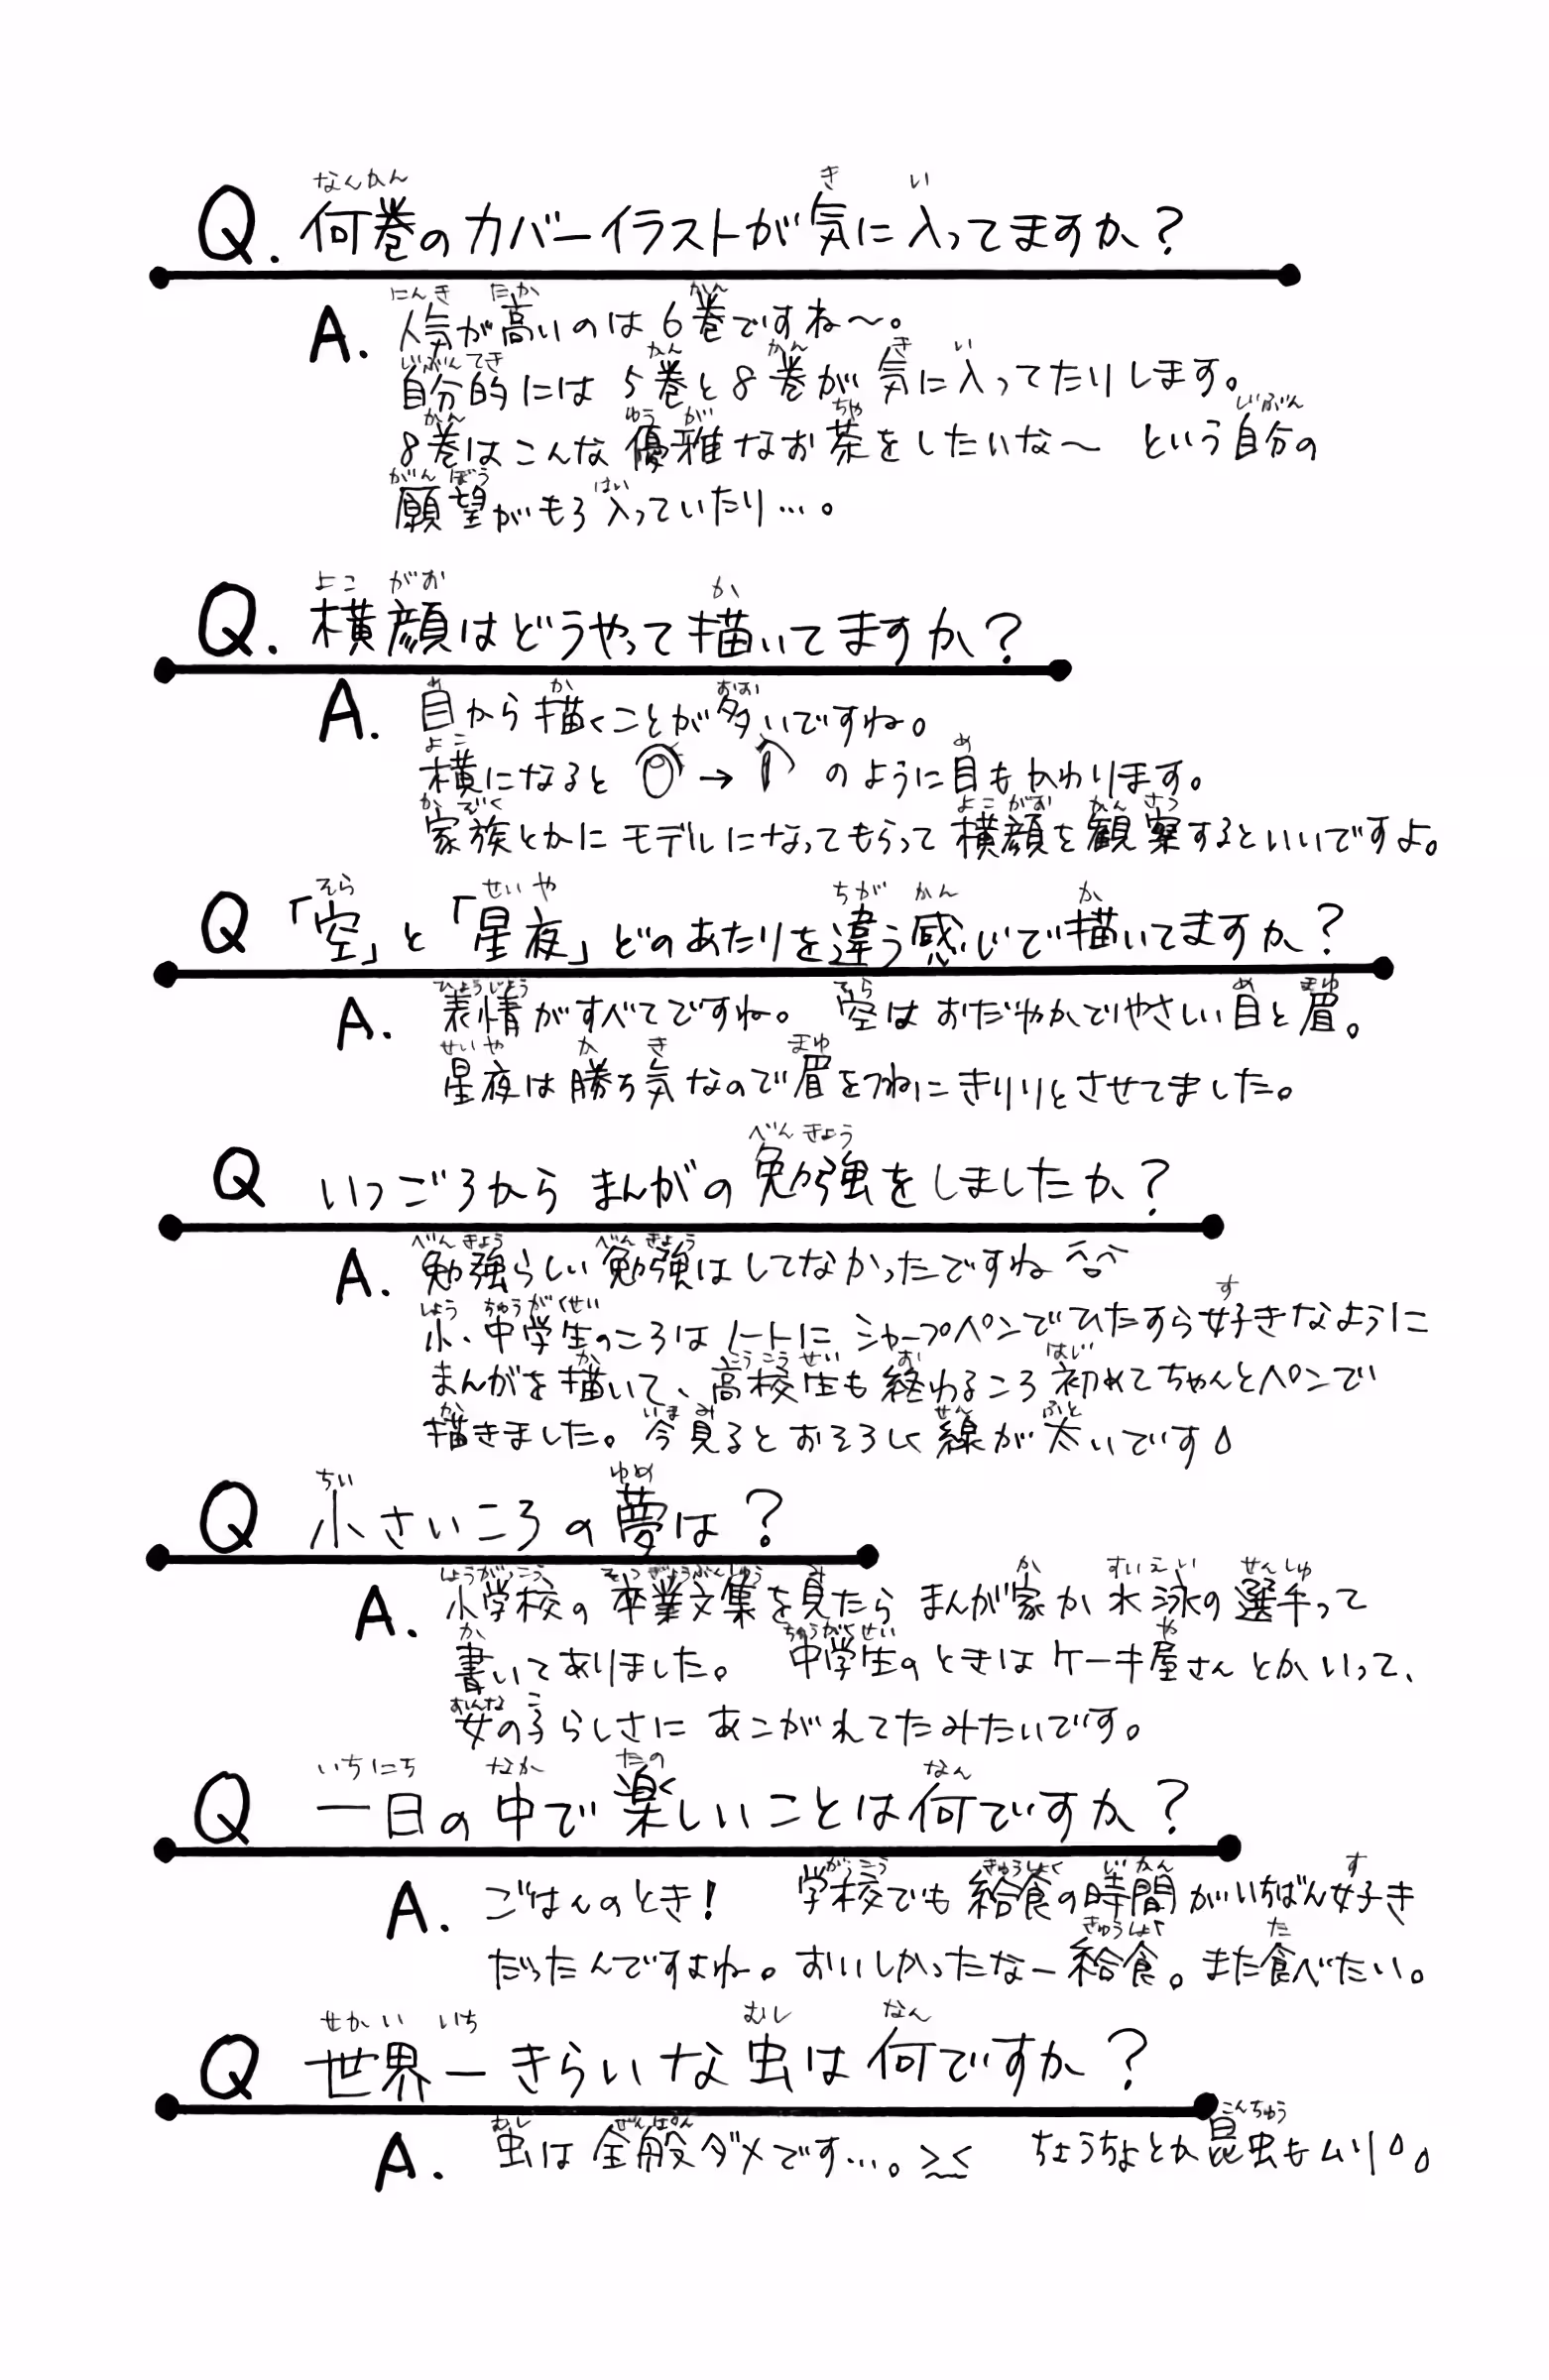 Q. 何巻のカバーイラストが気に入ってますか？
A. 人気が高いのは6巻ですね〜。
自分的には5巻と8巻が気に入ってたりします。
8巻はこんな優雅なお茶をしたいな〜 という自分の
願望がもろ入っていたり…。
Q. 横顔はどうやって描いてますか？
A. 目から描くことが多いですね。
横になると → のように目もかわります。
家族とかにモデルになってもらって横顔を観察するといいですよ。
Q 「空」と「星夜」どのあたりを違う感じで描いてますか？
A. 表情がすべてですね。 空はおだやかでやさしい目と眉。
星夜は勝ち気なので眉をつねにきりりとさせてました。
Q いつごろからまんがの勉強をしましたか？
A. 勉強らしい勉強はしてなかったですね
小・中学生のころはノートにシャープペンでひたすら好きなように
まんがを描いて、高校生も終わるころ初めてちゃんとペンで
描きました。今見るとおそろしく線が太いです
Q 小さいころの夢は？
A. 小学校の卒業文集を見たらまんが家か水泳の選手って
書いてありました。 中学生のときはケーキ屋さんとかいって、
女の子らしさにあこがれてたみたいです。
Q 一日の中で楽しいことは何ですか？
A. ごはんのとき! 学校でも給食の時間がいちばん好き
だったんですよね。おいしかったなー給食。また食べたい。
Q 世界一きらいな虫は何ですか？
A. 虫は全般ダメです…。>< ちょうちょとか昆虫もムリ